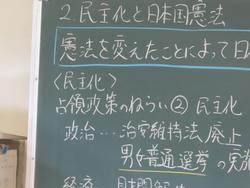 2.民主化と日本国憲法
憲法を変えたことによって日
〈民主化〉
占領政策のねらい② 民主化
政治…治安維持法 廃止
男女普通選挙の実
経済